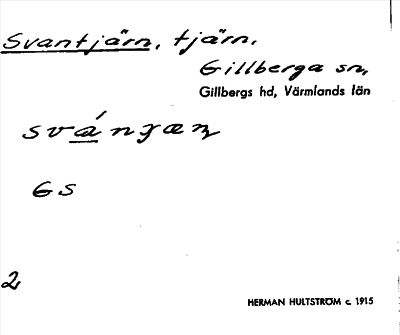 Svantjärn, tjärn.
Gillberga sn,
Gillbergs hd, Värmlands län
GS
2
HERMAN HULTSTRÖM c. 1915